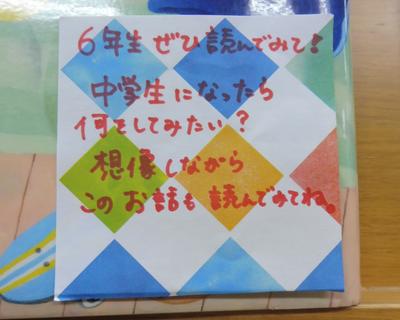 6年生 ぜひ読んでみて!
中学生になったら
何をしてみたい?
想像しながら
このお話も読んでみてね。